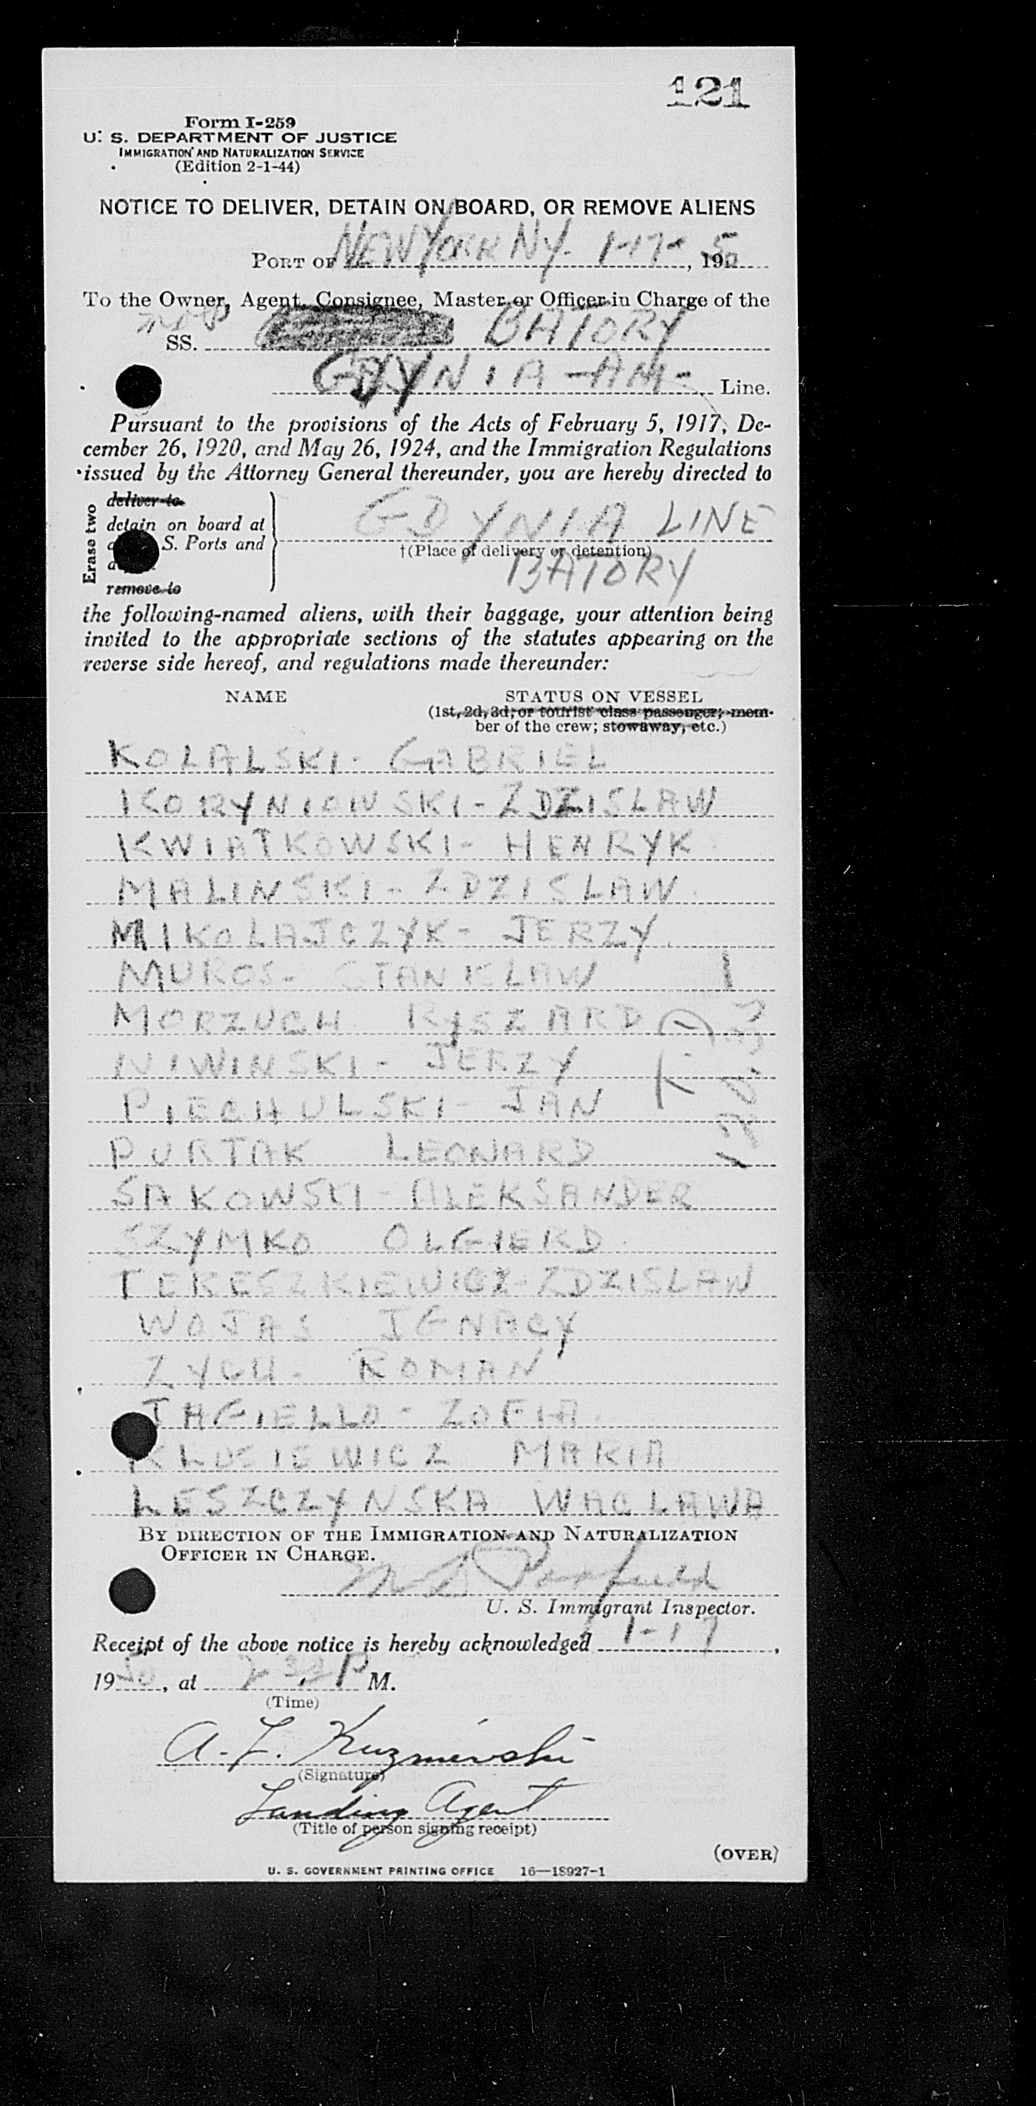 121
Form I-259
U. S. DEPARTMENT OF JUSTICE
IMMIGRATION AND NATURALIZATION SERVICE
(Edition 2-1-44)
NOTICE TO DELIVER, DETAIN ON BOARD, OR REMOVE ALIENS
PORT OF NEW YORK NY. 1-17- , 195
To the Owner, Agent, Consignee, Master or Officer in Charge of the
SS. BATORY
GDYNIA-AM- Line.
Pursuant to the provisions of the Acts of February 5, 1917, De-
cember 26, 1920, and May 26, 1924, and the Immigration Regulations
issued by the Attorney General thereunder, you are hereby directed to
Erase two
deliver to
detain on board at
S. Ports and
remove to
GDYNIA LINE
†(Place of delivery or detention)
BATORY
the following-named aliens, with their baggage, your attention being
invited to the appropriate sections of the statutes appearing on the
reverse side hereof, and regulations made thereunder:
NAME STATUS ON VESSEL
(1st, 2d, 3d, or tourist class passenger; mem-
ber of the crew; stowaway, etc.)
KOLALSKI- GABRIEL
KORYNIOWSKI- ZDZISLAW
KWIATKOWSKI- HENRYK
MALINSKI- ZDZISLAW
MIKOLAJCZYK- JERZY
MUROS- STANISLAW
MORZUCH RYSZARD
NIWINSKI- JERZY
PIECHULSKI- JAN
PURTAK LEONARD
SAKOWSKI- ALEKSANDER
SZYMKO OLGIERD
TERESZKIEWICZ- ZDZISLAW
WOJAS IGNACY
ZYCH- ROMAN
JAGIELLO- ZOFIA
KLOSIEWICZ MARIA
LESZCZYNSKA WACLAWA
BY DIRECTION OF THE IMMIGRATION AND NATURALIZATION
OFFICER IN CHARGE.
U. S. Immigrant Inspector.
Receipt of the above notice is hereby acknowledged 1-17 ,
1950, at P M.
(Time)
A. L. Kuzmiński
(Signature)
Landing Agent
(Title of person signing receipt)
(OVER)
U. S. GOVERNMENT PRINTING OFFICE 16—18927-1